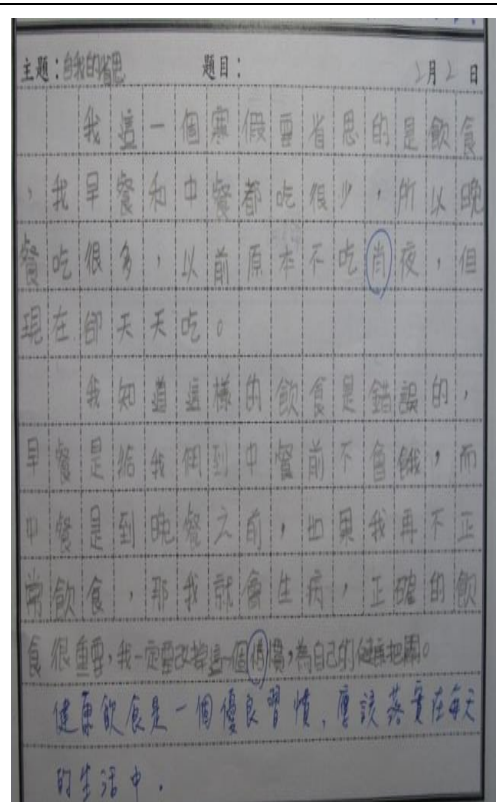 主題：自我的省思　題目：　2月2日
我這一個寒假要省思的是飲食
，我早餐和中餐都吃很少，所以晚
餐吃很多，以前原本不吃肖夜，但
現在卻天天吃。
我知道這樣的飲食是錯誤的，
早餐是給我們到中餐前不會餓，而
中餐是到晚餐之前，如果我再不正
常飲食，那我就會生病，正確的飲
食很重要，我一定要改掉這個慣，為自己的健康把關。
健康飲食是一個優良習慣，應該落實在每天
的生活中。